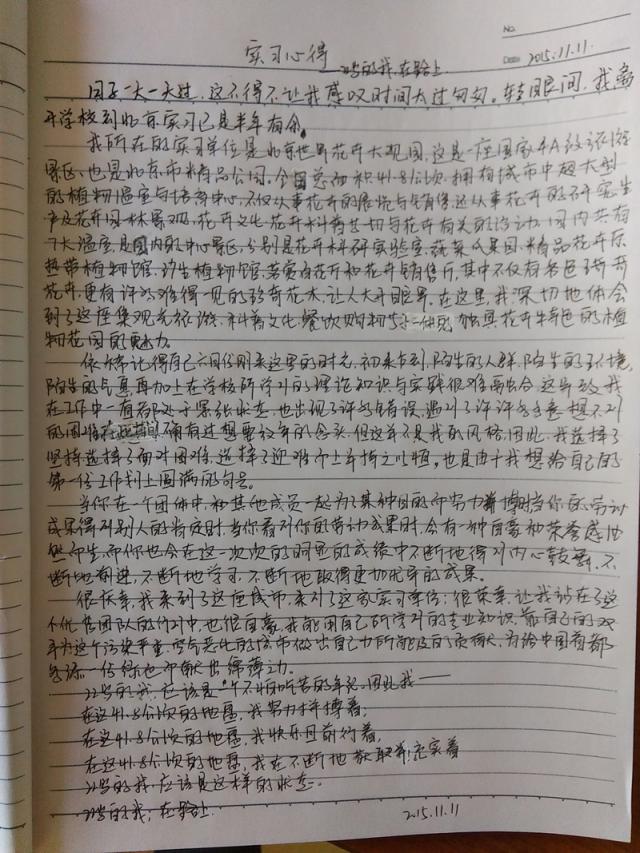 NO.
实习心得
Date 2015.11.11
——22岁的我,在路上
日子一天一天过,这不得不让我感叹时间太过匆匆。转眼间,我离
开学校到北京实习已是半年有余。
我所在的实习单位是北京世界花卉大观园,这是一座国家4A级旅游
景区,也是北京市精品公园。全园总面积41.8公顷,拥有城市中超大型
的植物温室与培育中心,不仅从事花卉的展览与销售,还从事花卉的研究生
产及花卉园林景观,花卉文化,花卉科普等一切与花卉有关的活动。园内共有
7大温室,是园内的中心景区,分别是花卉科研实验室,蔬菜瓜果园,精品花卉厅,
热带植物馆,沙生植物馆,茗赏百花厅和花卉销售厅,其中不仅有各色了新奇
花卉,更有许多难得一见的珍奇花木,让人大开眼界。在这里,我深切地体会
到了这座集观光旅游,科普文化,餐饮购物于一体的独具花卉特色的植
物花园的魅力。
依稀记得自己六月份刚来这里的时光,初来乍到,陌生的人群,陌生的环境,
陌生的气息,再加上在学校所学习的理论知识与实践很难融合,这导致我
在工作中一直都处于紧张状态,也出现了许多错误,遇到了许许多多意想不到
的困难,在此期间确有过想要放弃的念头,但这并不是我的风格,因此,我选择了
坚持,选择了面对困难,选择了迎难而上,并持之以恒。也是由于我想给自己的
第一份工作划上圆满的句号。
当你在一个团体中,和其他成员一起为了某种目的而努力拼搏时,当你的劳动
成果得到别人的肯定时,当你看到你的劳动成果时,会有一种自豪和荣誉感油
然而生,而你也会在这一次次的明显的成绩中不断地得到内心鼓舞,不
断地前进,不断地学习,不断地取得更加优异的成果。
很庆幸,我来到了这座城市,来到了这家实习单位;很荣幸,让我站在了这
个优秀团队的行列中,也很自豪,我能用自己所学到的专业知识,靠自己的双
手为这个污染严重,空气恶化的城市做出自己力所能及的贡献,为给中国首都
多添一份绿色而献出绵薄之力。
22岁的我,应该是个不怕吃苦的年纪。因此我——
在这41.8公顷的地里,我努力拼搏着;
在这41.8公顷的地里,我快乐且前行着,
在这41.8公顷的地里,我在不断地汲取并充实着
22岁的我,应该是这样的状态。
22岁的我,在路上
2015.11.11